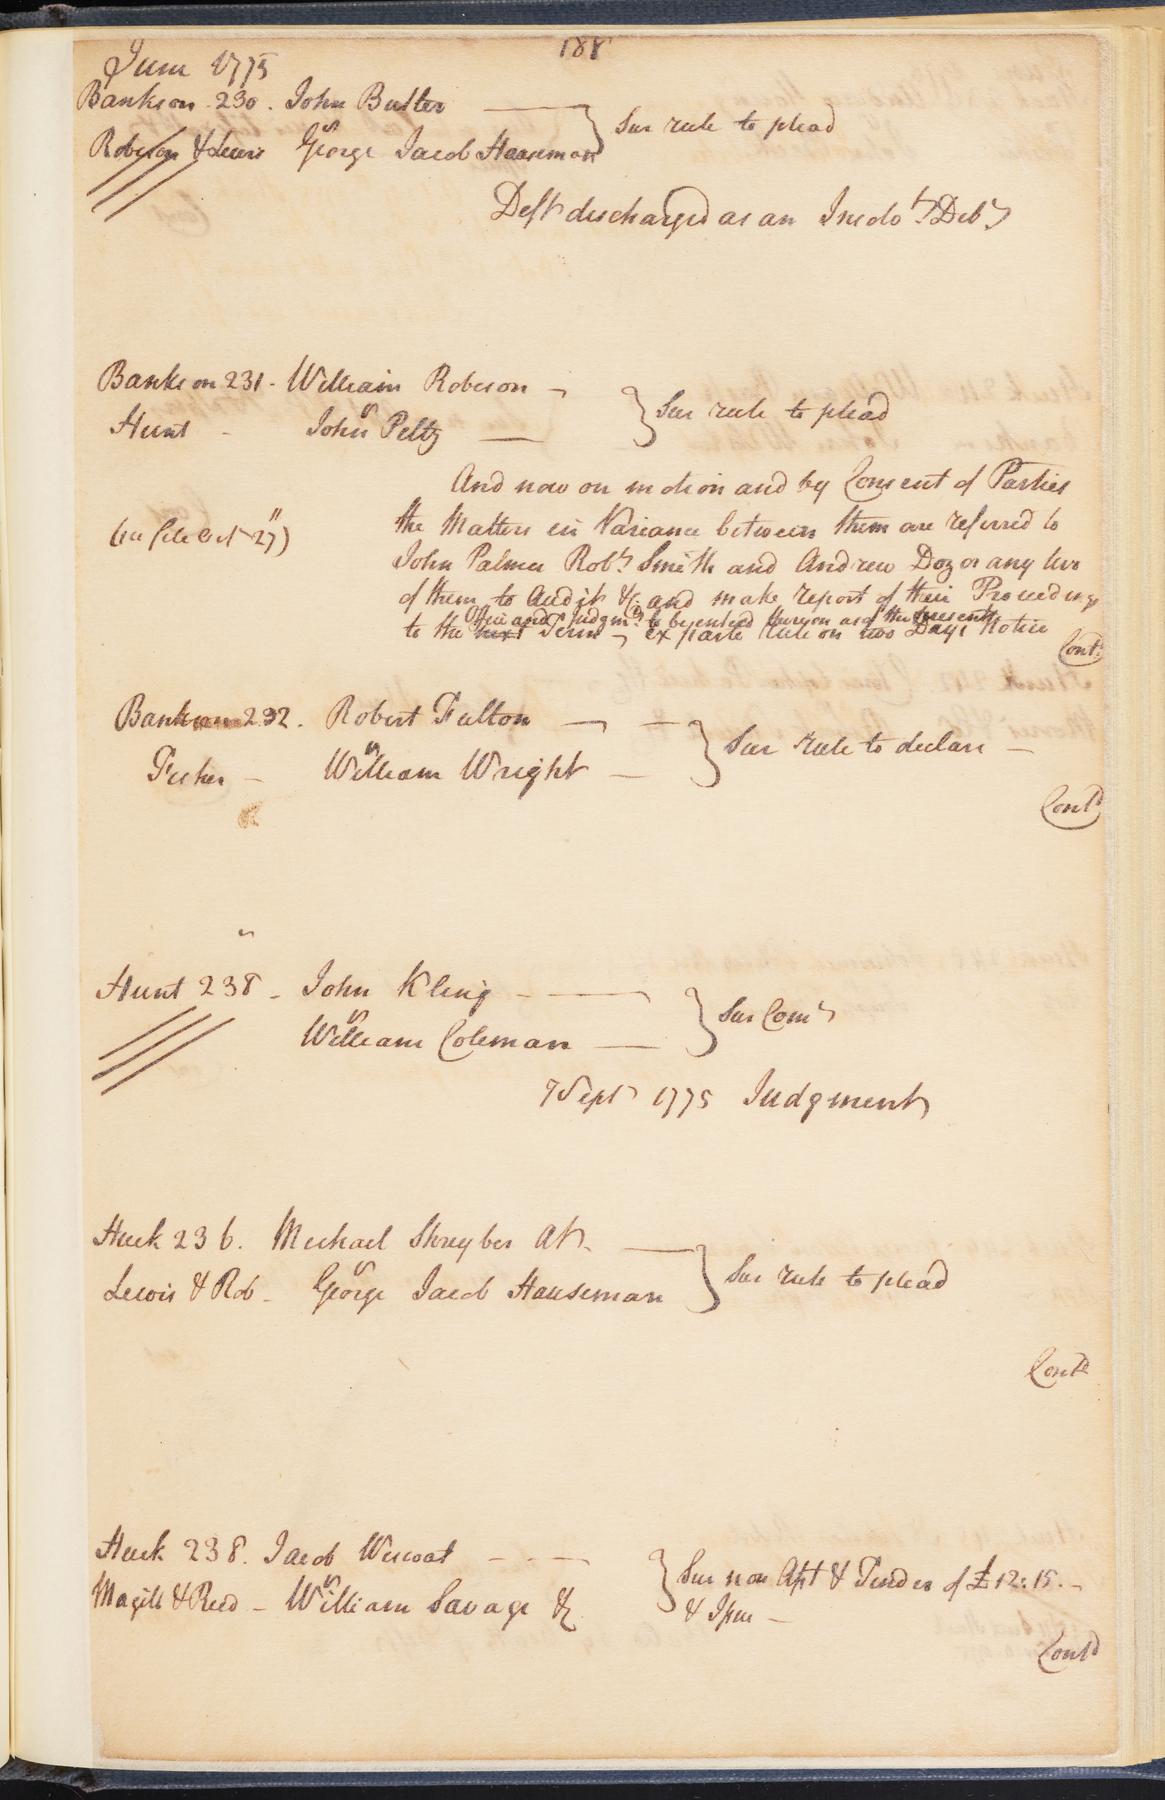 188
June 1775
Bankson 230. John Butler
vs
Robeson & Lewis George Jacob Houseman } Sur rule to plead
Deft discharged as an Insolt. Debr
Bankson 231 - William Robeson
vs
Hunt - John Peltz } Sur rule to plead
And now on motion and by Consent of Parties
(in file Oct 27)
the Matters in Variance between them are referred to
John Palmer Robt Smith and Andrew Doz or any two
of them to Audit &c. and make report of their Proceedings
Office and Judgmt. to be entered thereon as of the present
to the next Term - ex parte Rule on two Days Notice
Contd
Bankson 232. Robert Fulton
vs
Fisher - William Wright } Sur rule to declare -
Contd
Hunt 238 - John Kling
vs
William Coleman } Sur Comt
7 Sept 1775 Judgment
Huck 236. Michael Shreyber
vs
Lewis & Rob - George Jacob Houseman } Sur rule to plead
Contd
Huck 238. Jacob
vs
Magill & Reed - William Savage &c } Sur non Apt & Tender of £12:15. -
& Issue -
Contd